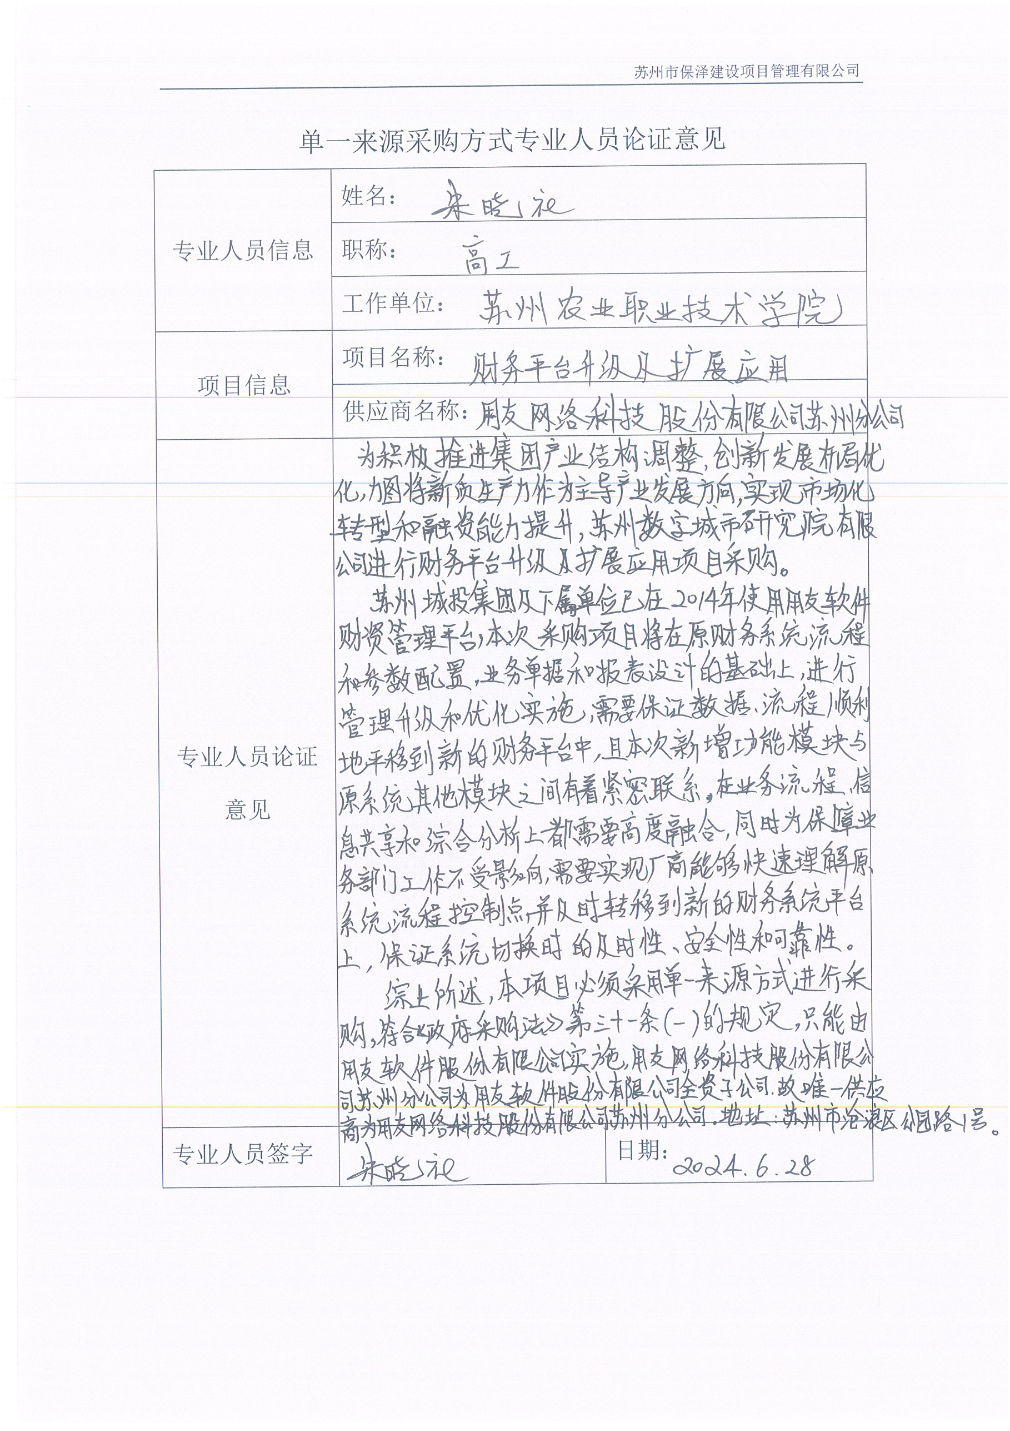 苏州市保泽建设项目管理有限公司
单一来源采购方式专业人员论证意见
专业人员信息
姓名：朱晓
职称：高工
工作单位：苏州农业职业技术学院
项目信息
项目名称：财务平台升级及扩展应用
供应商名称：用友网络科技股份有限公司苏州分公司
专业人员论证
意见
为积极推进集团产业结构调整，创新发展布局优
化，力图将新质生产力作为主导产业发展方向，实现市场化
转型和融资能力提升，苏州数字城市研究院有限
公司进行财务平台升级及扩展应用项目采购。
苏州城投集团及下属单位已在2014年使用用友软件
财资管理平台，本次采购项目将在原财务系统流程
和参数配置，业务单据和报表设计的基础上，进行
管理升级和优化实施，需要保证数据、流程顺利
地平移到新的财务平台中，且本次新增功能模块与
原系统其他模块之间有着紧密联系，在业务流程、信
息共享和综合分析上都需要高度融合，同时为保障业
务部门工作不受影响，需要实现厂商能够快速理解原
系统流程控制点，并及时转移到新的财务系统平台
上，保证系统切换时的及时性、安全性和可靠性。
综上所述，本项目必须采用单一来源方式进行采
购，符合《政府采购法》第三十一条(一)的规定，只能由
用友软件股份有限公司实施，用友网络科技股份有限公
司苏州分公司为用友软件股份有限公司全资子公司，故唯一供应
商为用友网络科技股份有限公司苏州分公司。地址：苏州市沧浪区公园路1号。
专业人员签字
朱晓
日期：2024.6.28